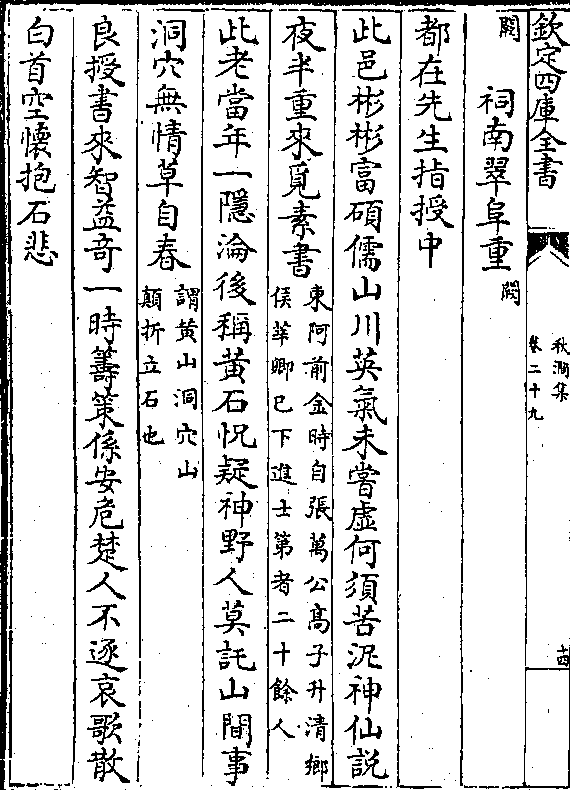 欽定四庫全書
秋澗集
卷二十九
十四
闕 祠南翠阜重闕
都在先生指授中
此邑彬彬富碩儒山川英氣未嘗虛何須苦泥神仙説
夜半重來覓素書
東阿前金時自張萬公高子升清鄉
侯華卿已下進士第者二十餘人
此老當年一隱淪後稱黄石怳疑神野人莫託山間事
洞穴無情草自春
謂黄山洞穴山
顛折立石也
良授書來智益竒一時籌策係安危楚人不逐哀歌散
白首空懷抱石悲